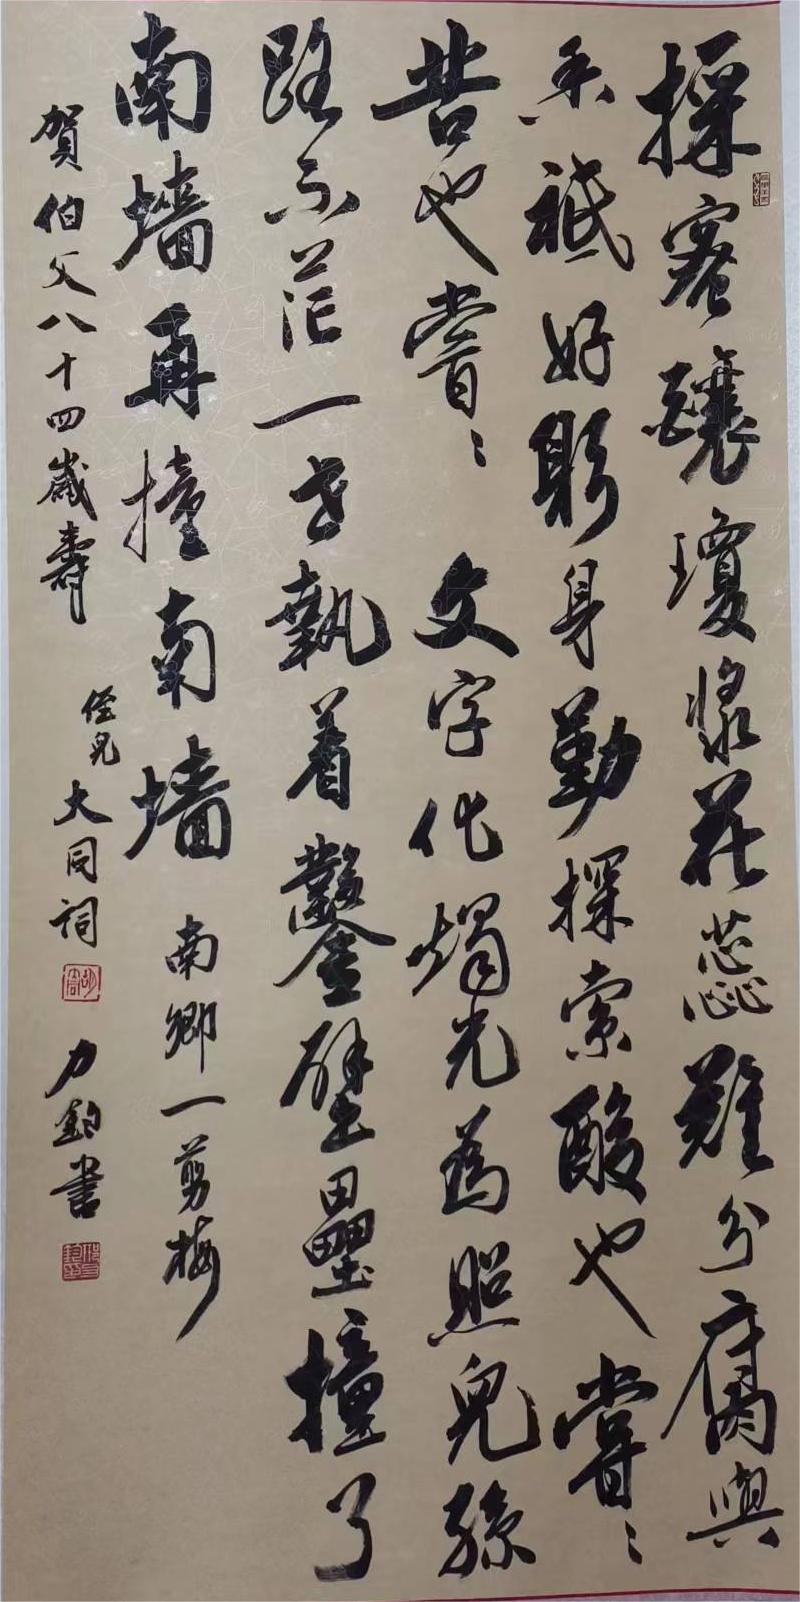 採蜜釀瓊漿花蕊難分腐與
香祗好躬身勤探索酸也嘗〻
苦也嘗〻 文字化燭光為照兒孫
路不茫一世執着鑿壁壘撞了
南墙再撞南墙 南鄉一剪梅
賀伯父八十四歲壽 侄兒大同詞 力鈞書